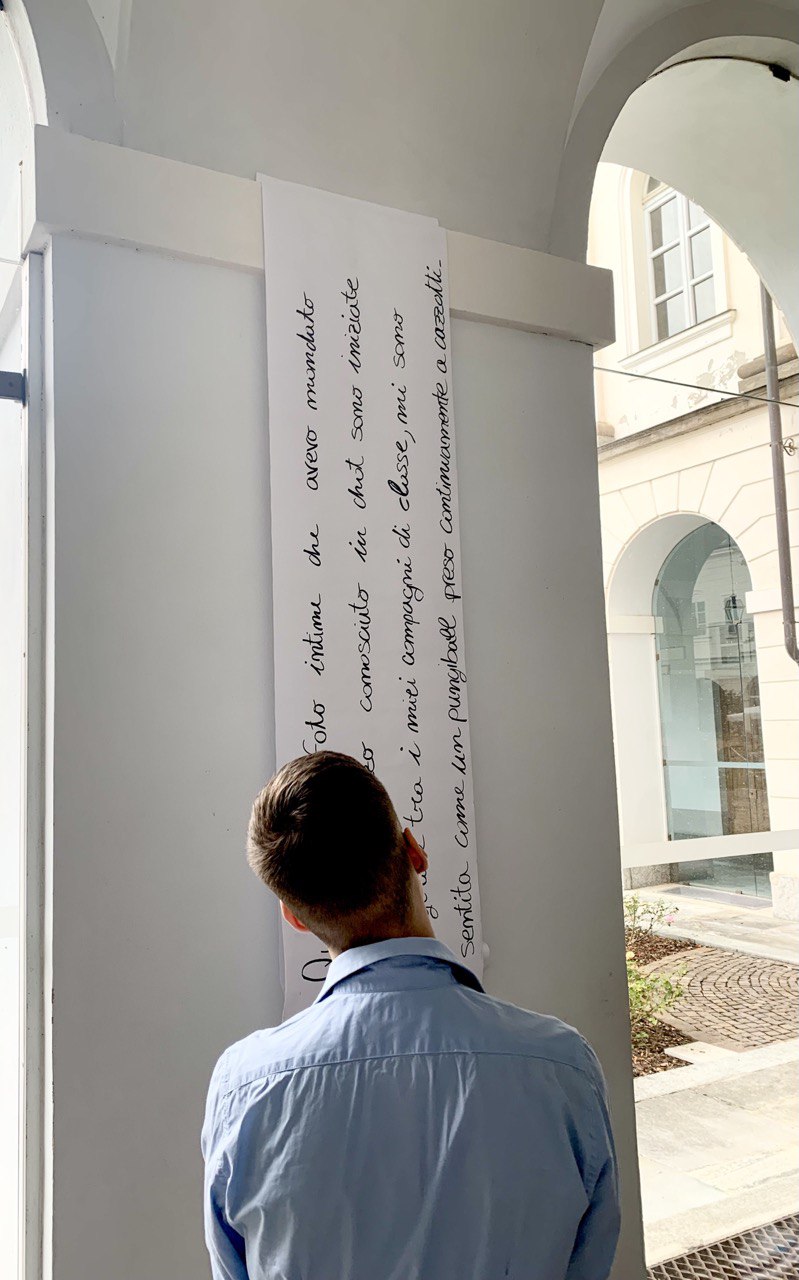 foto intime che avevo mandato
conosciuto in chat sono iniziate
tra i miei compagni di classe, mi sono
sentita come un pungiball preso continuamente a cazzotti.